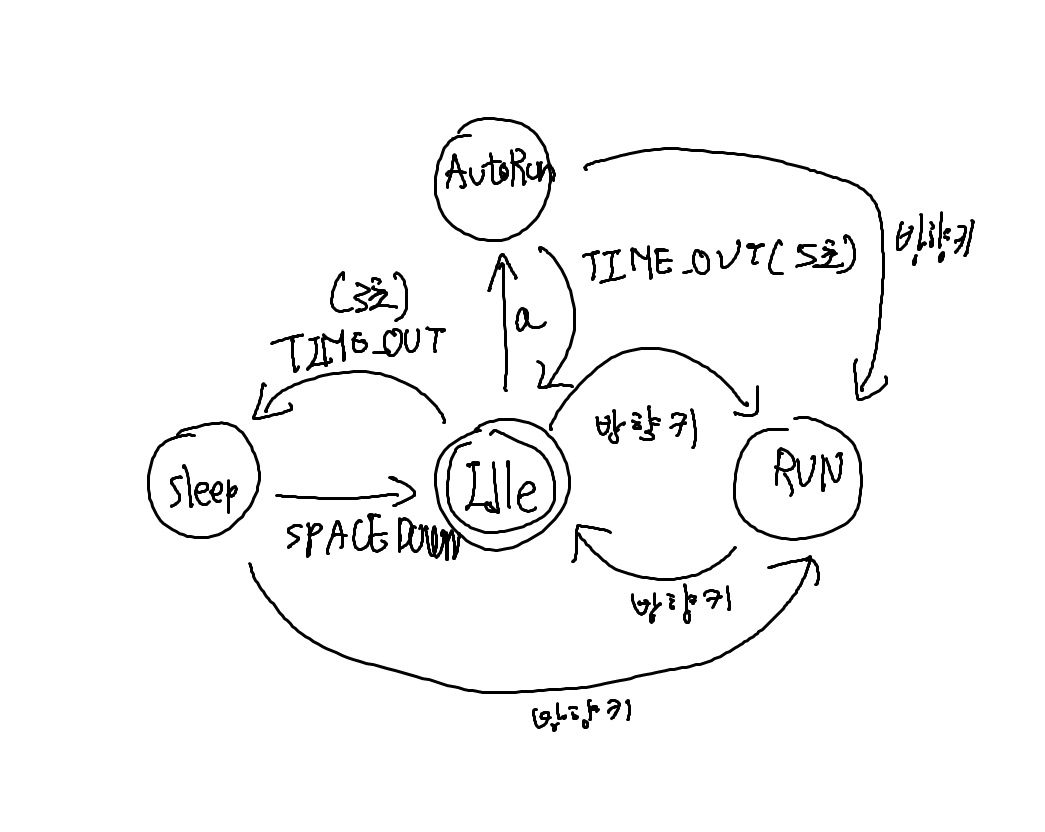 AutoRun
방향키
TIME_OUT(5초)
(3초)
TIME_OUT
a
방향키
Sleep
Idle
RUN
SPACE Down
방향키
방향키